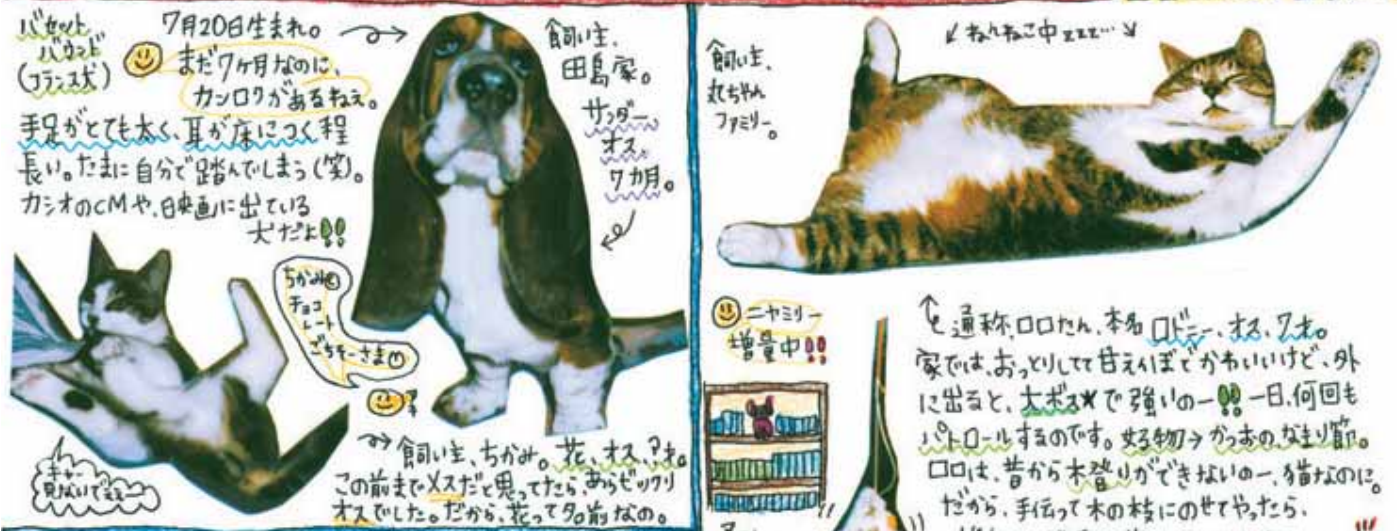 バセット
バウンド
(フランス犬)
7月20日生まれ。
まだ7ヶ月なのに、
カンロクがあるねぇ。
手足がとても太く、耳が床につく程
長い。たまに自分で踏んでしまう(笑)。
カシオのCMや、映画に出ている
犬だよ!!
飼い主、
田島家。
サンダー、
オス、
7カ月。
ちかみ
チョコ
レート
ごちそーさま
キャー
見ないでぇぇ〜
飼い主、ちかみ。花、オス、?才。
この前までメスだと思ってたら、あらビックリ
オスでした。だから、花って名前なの。
ねんねこ中zzz…
飼い主、
丸ちゃん
ファミリー。
ニャミリー
増量中!!
通称、ロロたん、本名ロドニー、オス、7才。
家では、おっとりしてて甘えんぼでかわいいけど、外
に出ると、大ボスで強いのー!!一日、何回も
パトロールするのです。好物→かつおのなまり節。
ロロは、昔から木登りができないのー、猫なのに。
だから、手伝って木の枝にのせてやったら、